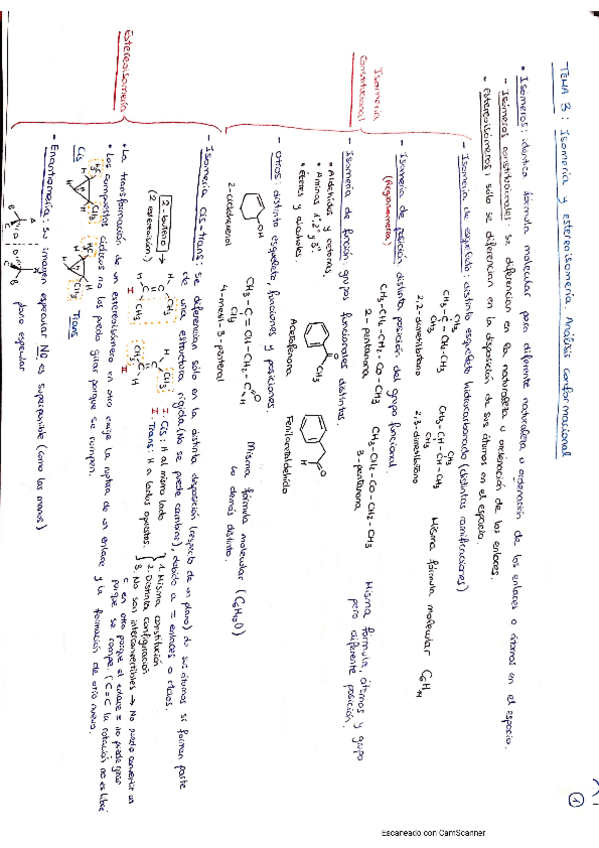 TEMA 3: Isomería y estereoisomería. Análisis conformacional
1
• Isómeros: idéntica fórmula molecular pero diferente naturaleza u ordenación de los enlaces o átomos en el espacio.
- Isómeros constitucionales: se diferencian en la naturaleza u ordenación de los enlaces.
- Estereoisómeros: sólo se diferencian en la disposición de sus átomos en el espacio.
Isomería
Constitucional
- Isomería de esqueleto: distinto esqueleto hidrocarbonado (distintas ramificaciones)
CH3
CH3 - C - CH2 - CH3
CH3
2,2-dimetilbutano
CH3 CH3
CH3 - CH - CH - CH3
2,3-dimetilbutano
Misma fórmula molecular C6H14
- Isomería de posición: distinta posición del grupo funcional.
(Regioisomería)
CH3-CH2-CH2-CO-CH3
2-pentanona
CH3-CH2-CO-CH2-CH3
3-pentanona
Misma fórmula, átomos y grupo
pero diferente posición.
- Isomería de función: grupos funcionales distintos.
• Aldehídos y cetonas.
• Aminas 1º, 2º y 3º
• Éteres y alcoholes.
O
CH3
Acetofenona
O
H
Fenilacetaldehído
- Otros: distinto esqueleto, funciones y posiciones.
OH
2-ciclohexenol
CH3 - C = CH - CH2 - C
CH3
O
H
4-metil-3-pentenal
Misma fórmula molecular
lo demás distinto.
Estereoisomería
- Isomería Cis-Trans: se diferencian sólo en la distinta disposición (respecto de un plano) de sus átomos si forman parte
de una estructura rígida (No se puede cambiar), debido a = enlaces o ciclos.
2-buteno
(2 estereoisóm.)
I. Cis: H al mismo lado
II. Trans: H a lados opuestos.
1. Misma constitución
2. Distinta configuración
3. No son interconvertibles → No puedo convertir un
C en otro porque el enlace = no puede girar
porque se rompe. (C=C la rotación no es libre)
• La transformación de un estereoisómero en otro exige la ruptura de un enlace y la formación de otro nuevo.
• Los compuestos cíclicos no los puedo girar porque se rompen.
Cis
H3C
CH3
Trans
- Enantiomería: su imagen especular NO es superponible (como las manos)
plano especular
Escaneado con CamScanner